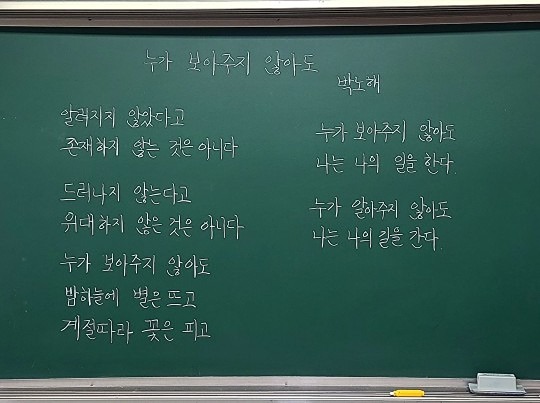 누가 보아주지 않아도
박노해
알려지지 않았다고
존재하지 않는 것은 아니다
드러나지 않는다고
위대하지 않은 것은 아니다
누가 보아주지 않아도
밤하늘에 별은 뜨고
계절따라 꽃은 피고
누가 보아주지 않아도
나는 나의 일을 한다.
누가 알아주지 않아도
나는 나의 길을 간다.